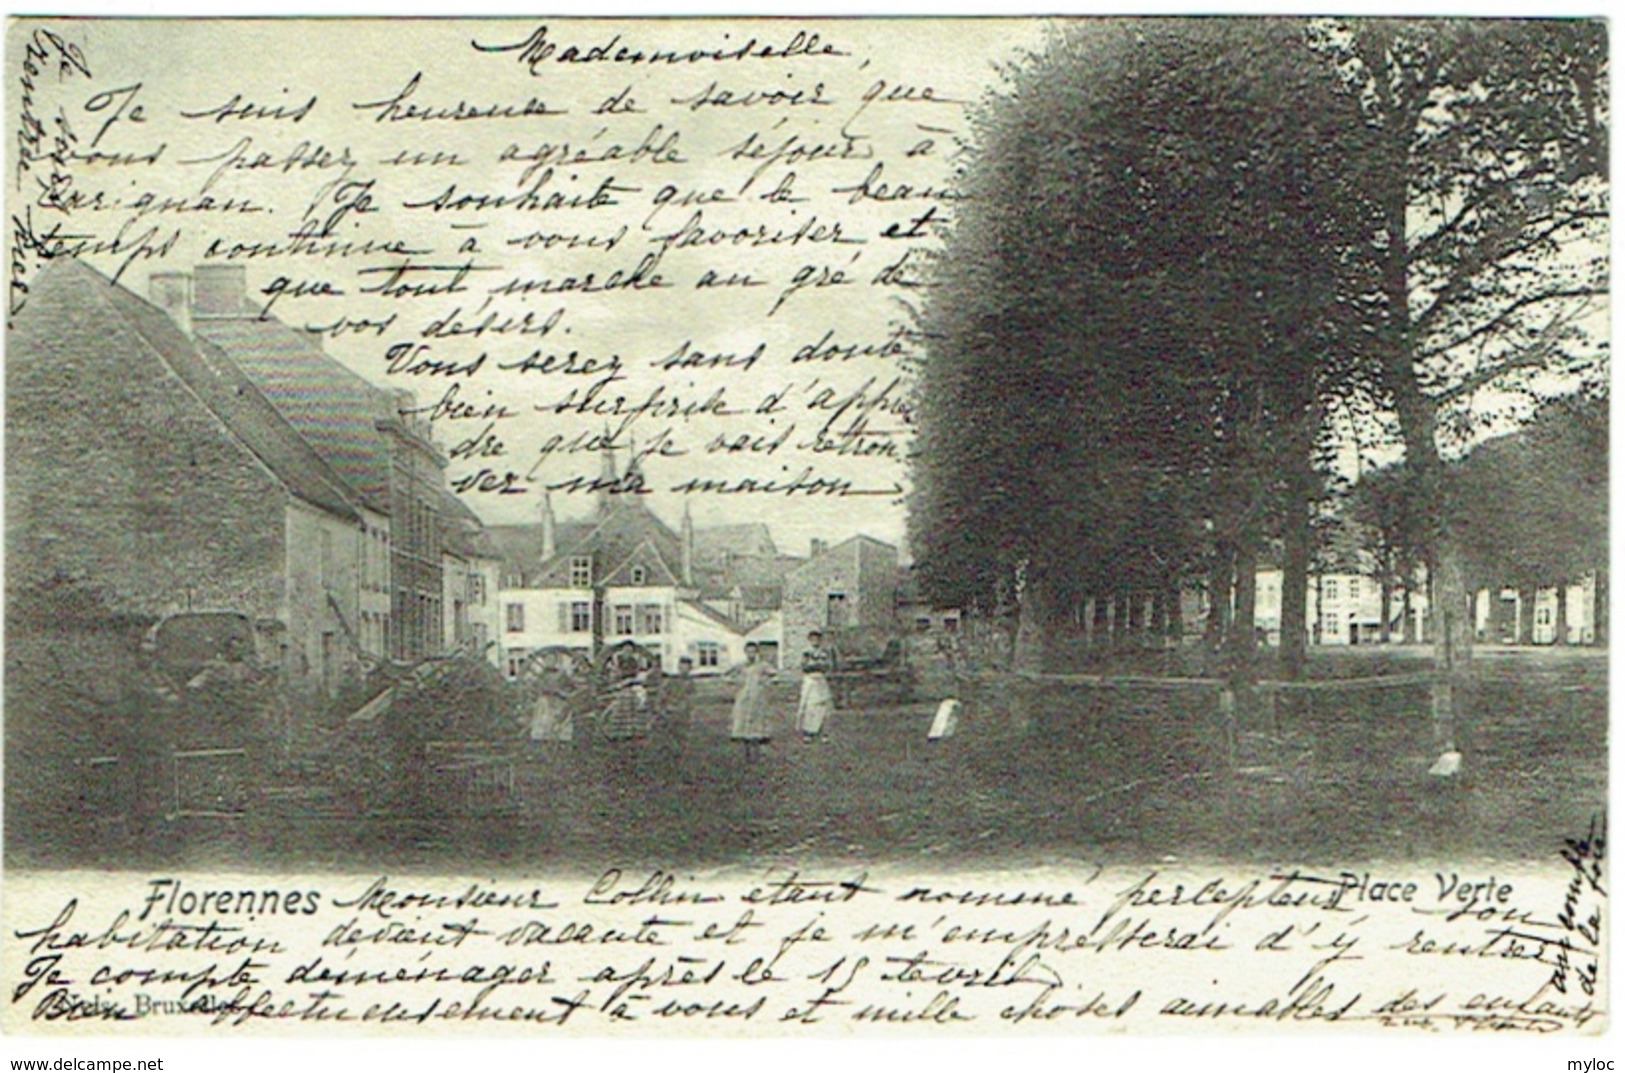 Mademoiselle,
Je suis heureuse de savoir que
vous passez un agréable séjour à
Carignan. Je souhaite que le beau
temps continue à vous favoriser et
que tout marche au gré de
vos désirs.
Vous serez sans doute
bien surprise d'appren
dre que je vais retrou
ver ma maison
Florennes
Place Verte
Monsieur Collin étant nommé percepteur son
habitation devient vacante et je m'empresserai d'y rentrer
Je compte déménager après le 15 avril
Nels, Bruxelles
Bien affectueusement à vous et mille choses aimables des enfants
au comble
de la joie
Je
rentrée